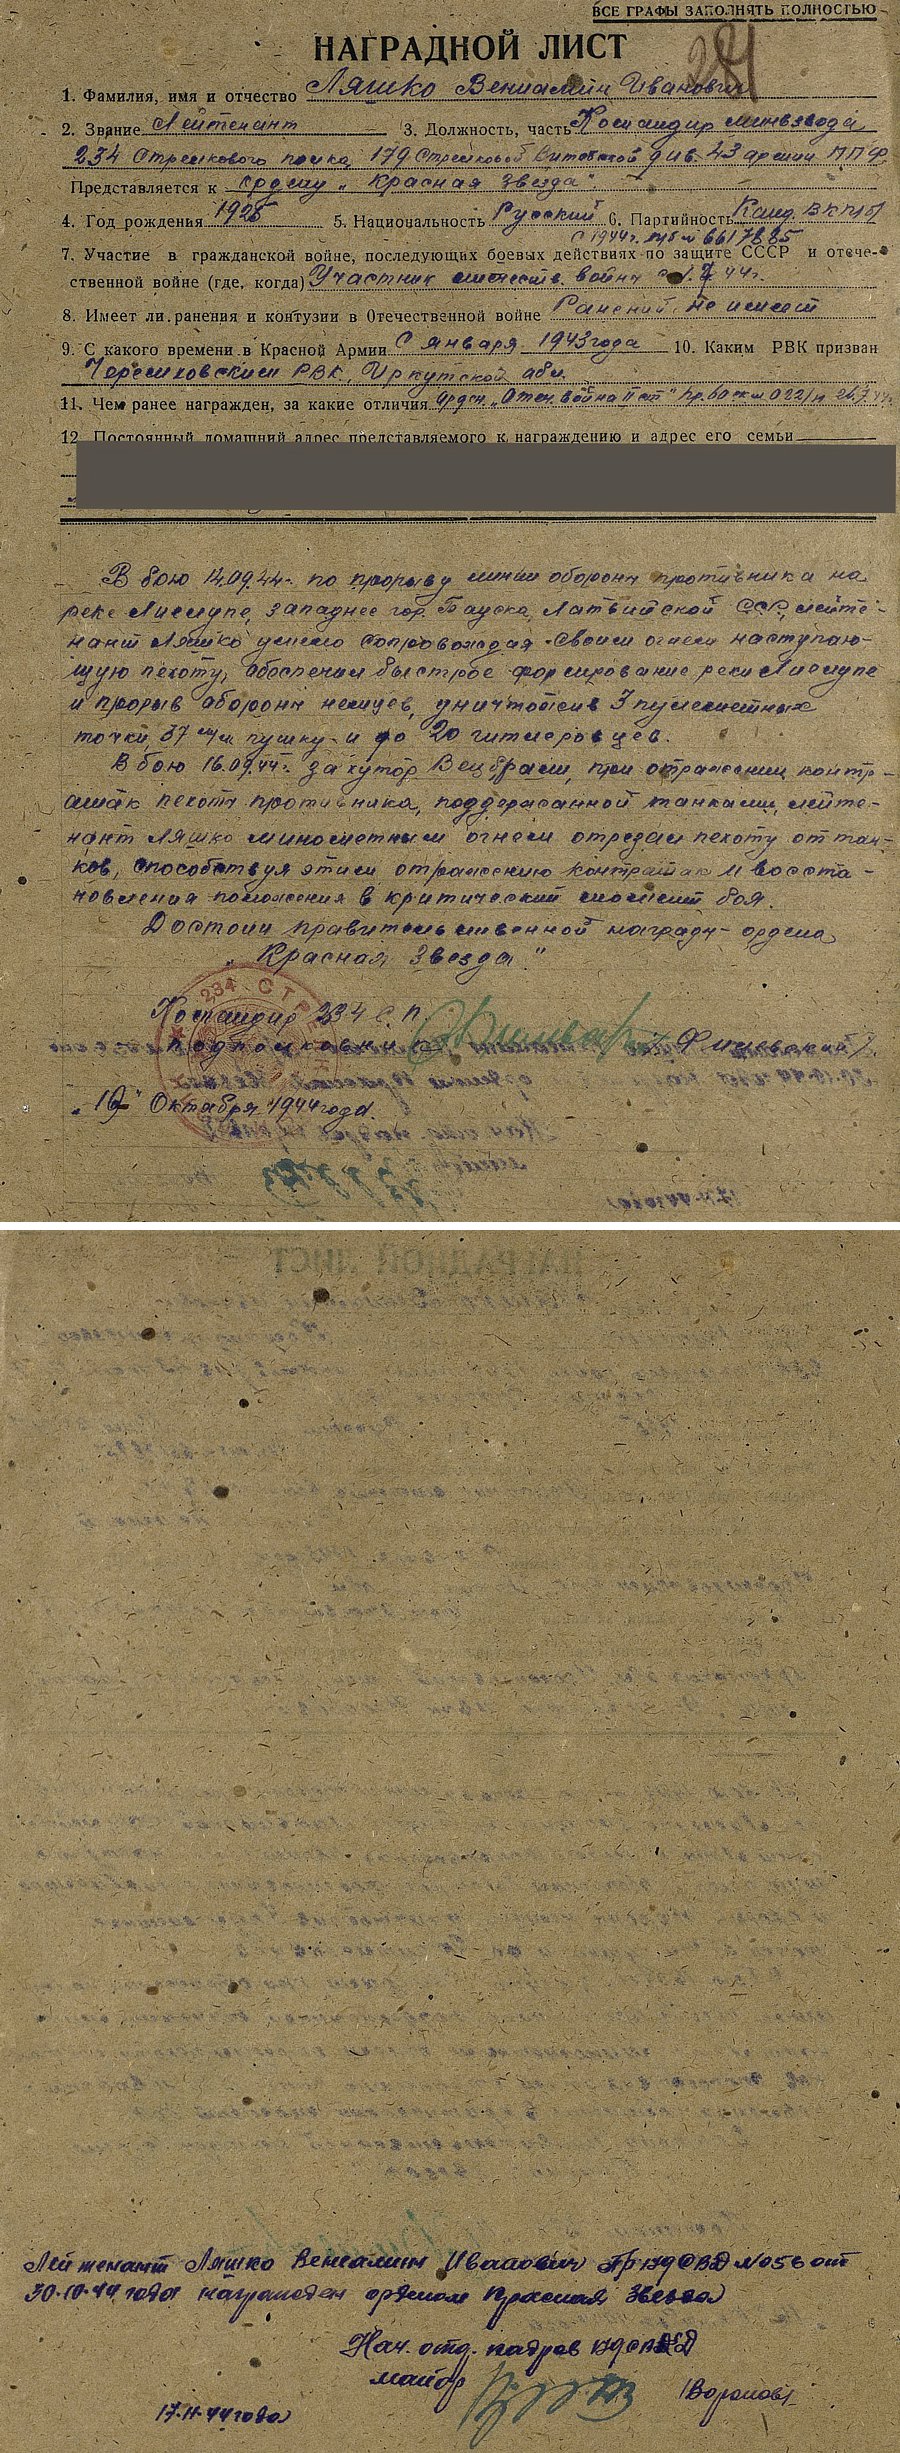 ВСЕ ГРАФЫ ЗАПОЛНЯТЬ ПОЛНОСТЬЮ
НАГРАДНОЙ ЛИСТ
1. Фамилия, имя и отчество Ляшко Вениамин Иванович
2. Звание Лейтенант 3. Должность, часть Командир минвзвода
234 Стрелкового полка, 179 Стрелковой Витебской див. 43 армии 1 ПФ
Представляется к ордену „Красная Звезда".
4. Год рождения 1925 5. Национальность Русский 6. Партийность Канд. ВКП(б)
с 1944г. 6617885
7. Участие в гражданской войне, последующих боевых действиях по защите СССР и отече-
ственной войне (где, когда) Участник отечеств. войны с 44г.
8. Имеет ли ранения и контузии в Отечественной войне Ранений не имеет
9. С какого времени в Красной Армии С января 1943 года 10. Каким РВК призван
Черемховским РВК, Иркутской обл.
11. Чем ранее награжден, за какие отличия Орден. „Отеч. война II ст"
12. Постоянный домашний адрес представляемого к награждению и адрес его семьи
В бою 14.09.44г. по прорыву линии обороны противника на
реке Лиелупе, западнее гор. Бауска, Латвийской ССР, лейте-
нант Ляшко умело сопровождая своим огнем наступаю-
щую пехоту, обеспечил быстрое форсирование реки Лиелупе
и прорыв обороны немцев, уничтожив 3 пулеметных
точки, 37 м/м пушку и до 20 гитлеровцев.
В бою 16.09.44г. за хутор Вецбрам, при отражении контр-
атак пехоты противника, поддержанной танками, лейте-
нант Ляшко минометным огнем отрезал пехоту от тан-
ков, способствуя этим отражению контратак и восста-
новления положения в критический момент боя.
Достоин правительственной награды - ордена
„Красная Звезда"
234 СТРЕЛК
Командир 234 С.П.
подполковник
„16" Октября 1944 года.
Лейтенант Ляшко Вениамин Иванович Пр 179 СВД №056 от
30.10.44 года награжден орденом Красная Звезда
Нач. отд. кадров 179 СВКД
майор /Воронов/
17.11.44 года